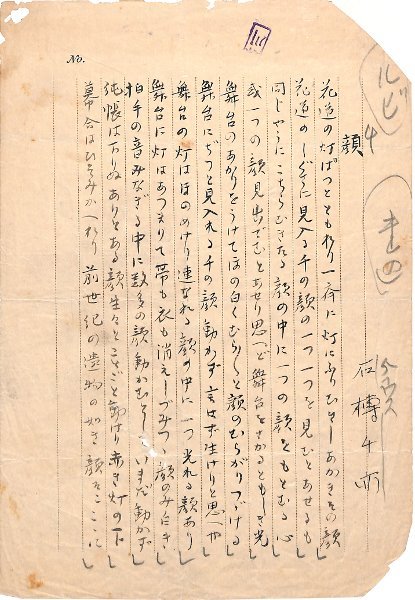 No.
ルビ4
顔
石榑千亦
花道の灯ぱつとともれり一斉に灯にふりむきしあかきその顔
花道のしぐさに見入る千の顔の一つ一つを見むとあせるも
同じやうにこちらむきたる顔の中に一つの顔をもとむる心
或一つの顔見出でむとあせり思へど舞台をさかるともしき光
舞台のあかりをうけてほの白くむら〳〵と顔のむらがりつづける
舞台にぢつと見入れる千の顔動かず言はず生けりと思へや
舞台の灯はほのめけり連なれる顔の中に一つ光れる顔あり
舞台に灯はあつまりて帯も衣も消え
顔のみに
拍手の音みなぎる中に数多の顔動かむとし いまだ動かず
純帳は下りぬありとある顔生々とことごと動けり赤き灯の下
幕合はひそみかへれり前世紀の遺物の如き顔もここに